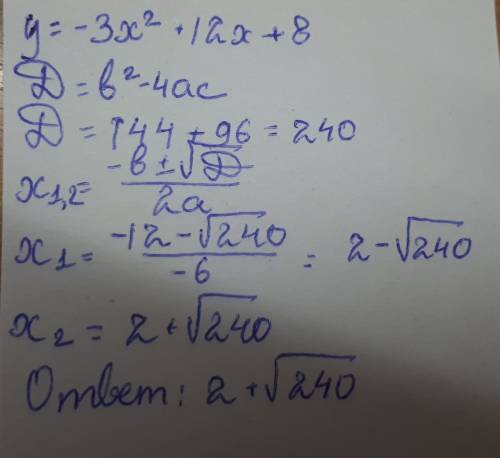 y = -3x² + 12x + 8
D = b² - 4ac
D = 144 + 96 = 240
x₁,₂ = (-b ± √D) / 2a
x₁ = (-12 - √240) / -6 = 2 - √240
x₂ = 2 + √240
Ответ: 2 + √240